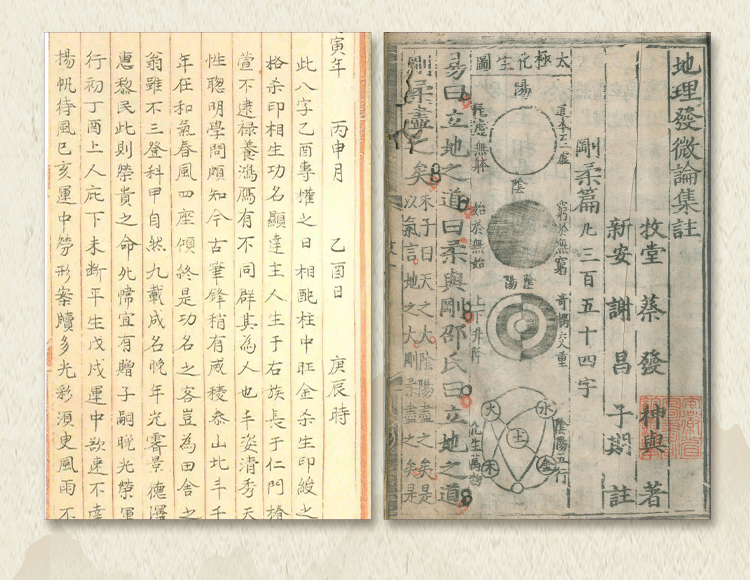 地理發微論集註
牧堂 蔡發 神與 著
新安 謝昌 子期 註
剛柔篇 凡三百五十四字
太極化生圖
陽
陰
陰 陽
始於無始
上下升降
水
火
土
木
金
陰陽五行
化生萬物
易曰立地之道曰柔與剛邵氏曰立地之道
剛柔盡之矣
朱子曰天之大陰陽盡之矣是
以氣言地之大剛柔盡之矣是
寅年 丙申月 乙酉日 庚辰時
此八字乙酉專權之日相配柱中旺金杀生印綬之
格杀印相生功名顯達主人生于右族長于仁門椿
萱不逮祿養鴻鴈有不同群其為人也丰姿清秀天
性聰明學問頗知今古筆鋒稍有威稜泰山北斗千
年在和氣春風四座傾終是功名之客豈為田舍之
翁雖不三登科甲自然九載成名晚年光霽景德澤
惠黎民此則榮貴之命幃宜有贈子嗣晚光榮運
行初丁酉上人庇下未斷平生戊戌運中欲速不達
揚帆待風己亥運中勞形案牘多光彩須更風雨不